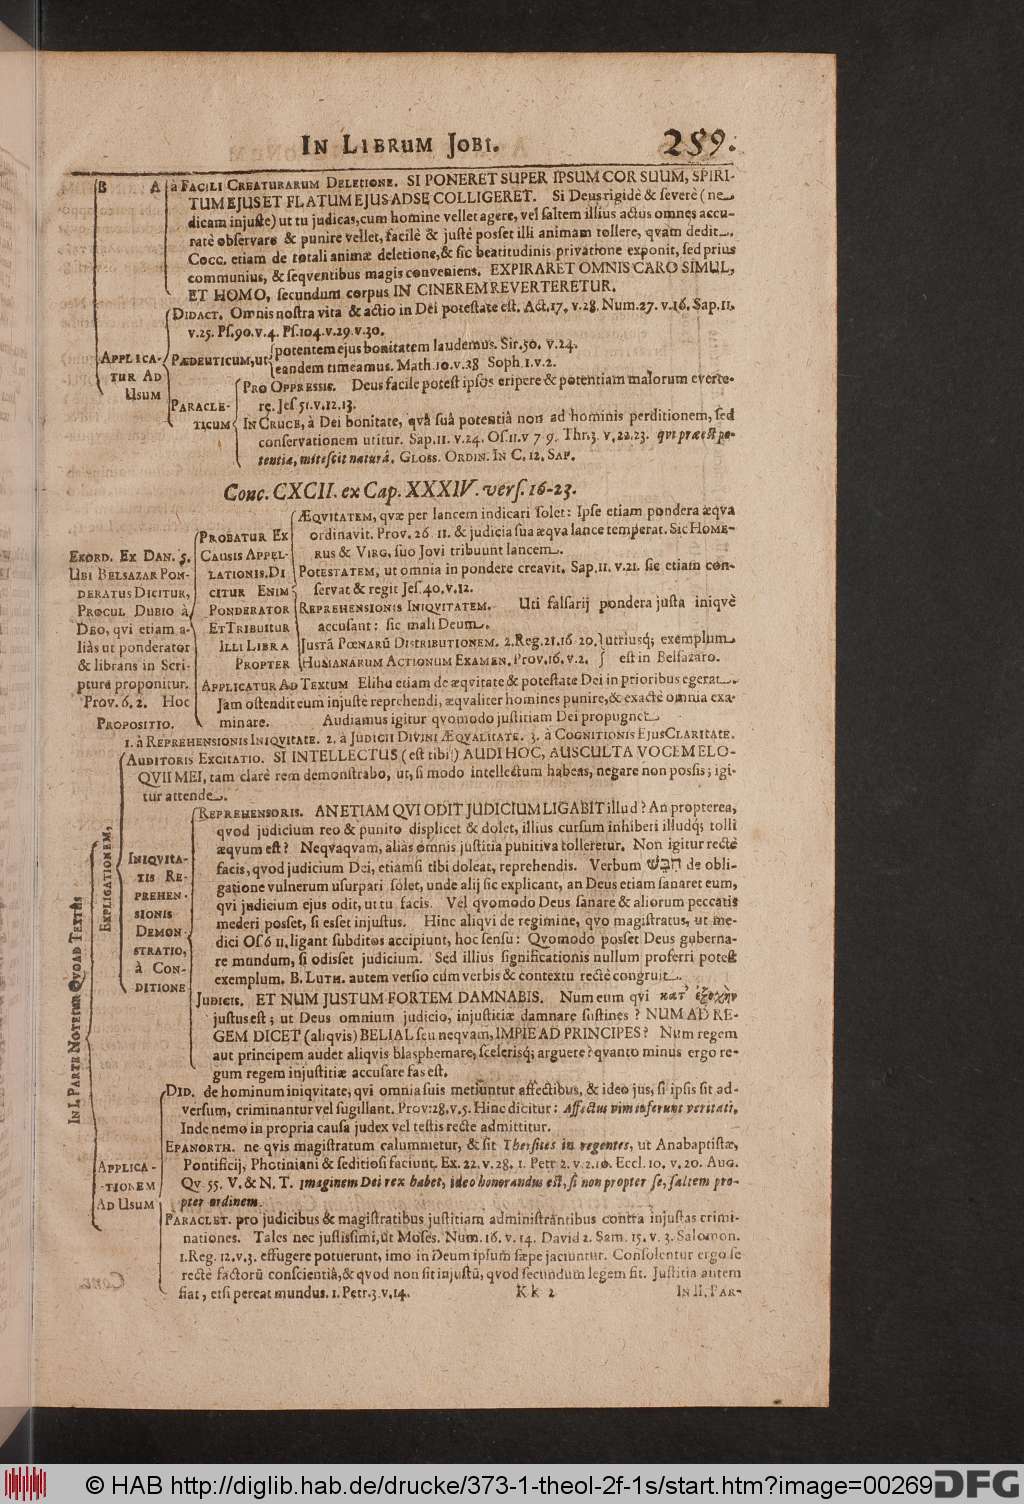 IN LIBRUM JOBI. 259.
B A à FACILI CREATURARUM DELETIONE. SI PONERET SUPER IPSUM COR SUUM, SPIRI-
TUM EJUS ET FLATUM EJUS AD SE COLLIGERET. Si Deus rigidè & severè (ne
dicam injuste) ut tu judicas, cum homine vellet agere, vel saltem illius actus omnes accu-
ratè observare & punire vellet, facilè & justè posset illi animam tollere, qvam dedit.
Cocc. etiam de totali animæ deletione, & sic beatitudinis privatione exponit, sed prius
communius, & seqventibus magis conveniens. EXPIRARET OMNIS CARO SIMUL,
ET HOMO, secundum corpus IN CINEREM REVERTERETUR.
APPLICA-
TUR AD
USUM
DIDACT. Omnis nostra vita & actio in Dei potestate est. Act. 17. v. 28. Num. 27. v. 16. Sap. 11.
v. 25. Ps. 90. v. 4. Ps. 104. v. 29. v. 30.
PÆDEUTICUM, ut
potentem ejus bonitatem laudemus. Sir. 50. v. 24.
eandem timeamus. Math. 10. v. 28 Soph 1. v. 2.
PARACLE-
TICUM
PRO OPPRESSIS. Deus facile potest ipsos eripere & potentiam malorum everte-
re. Jes 51. v. 12. 13.
IN CRUCE, à Dei bonitate, qvâ suâ potentiâ non ad hominis perditionem, sed
conservationem utitur. Sap. 11. v. 24. Os. 11. v 7 9. Thr. 3. v. 22. 23. qvi præest po-
tentia, mitescit naturâ. GLOSS. ORDIN. IN C. 12. SAP.
Conc. CXCII. ex Cap. XXXIV. vers. 16-23.
EXORD. EX DAN. 5.
UBI BELSAZAR PON-
DERATUS DICITUR,
PROCUL DUBIO à
DEO, qvi etiam a-
liàs ut ponderator
& librans in Scri-
ptura proponitur.
Prov. 6. 2. Hoc
PROBATUR EX
CAUSIS APPEL-
LATIONIS. DI
CITUR ENIM
PONDERATOR
ET TRIBUITUR
ILLI LIBRA
PROPTER
ÆQVITATEM, qvæ per lancem indicari solet: Ipse etiam pondera æqva
ordinavit. Prov. 26 11. & judicia sua æqva lance temperat. SIC HOME-
RUS & VIRG. suo Jovi tribuunt lancem.
POTESTATEM, ut omnia in pondere creavit. Sap. 11. v. 21. sic etiam con-
servat & regit Jes. 40. v. 12.
REPREHENSIONIS INIQVITATEM. Uti falsarij pondera justa iniqvè
accusant: sic mali Deum.
JUSTÂ POENARŪ DISTRIBUTIONEM. 2. Reg. 21. 16 20. utriusq; exemplum
HUMANARUM ACTIONUM EXAMEN. Prov. 16. v. 2. est in Belsazaro.
APPLICATUR AD TEXTUM Elihu etiam de æqvitate & potestate Dei in prioribus egerat.
Jam ostendit eum injuste reprehendi, æqvaliter homines punire, & exactè omnia exa-
PROPOSITIO. minare. Audiamus igitur qvomodo justitiam Dei propugnet
1. à REPREHENSIONIS INIQVITATE. 2. à JUDICII DIVINI ÆQVALITATE. 3. à COGNITIONIS EJUS CLARITATE.
IN I. PARTE NOTETUR QVOAD TEXTUS
EXPLICATIONEM,
AUDITORIS EXCITATIO. SI INTELLECTUS (est tibi) AUDI HOC, AUSCULTA VOCEM ELO-
QVII MEI, tam clarè rem demonstrabo, ut, si modo intellectum habeas, negare non possis; igi-
tur attende.
INIQVITA-
TIS RE-
PREHEN-
SIONIS
DEMON-
STRATIO,
à CON-
DITIONE
REPREHENSORIS. AN ETIAM QVI ODIT JUDICIUM LIGABIT illud? An propterea,
qvod judicium reo & punito displicet & dolet, illius cursum inhiberi illudq; tolli
æqvum est? Neqvaqvam, alias omnis justitia punitiva tolleretur. Non igitur rectè
facis, qvod judicium Dei, etiamsi tibi doleat, reprehendis. Verbum חבש de obli-
gatione vulnerum usurpari solet, unde alij sic explicant, an Deus etiam sanaret eum,
qvi judicium ejus odit, ut tu facis. Vel qvomodo Deus sanare & aliorum peccatis
mederi posset, si esset injustus. Hinc aliqvi de regimine, qvo magistratus, ut me-
dici Os. 6 11. ligant subditos accipiunt, hoc sensu: Qvomodo posset Deus guberna-
re mundum, si odisset judicium. Sed illius significationis nullum proferri potest
exemplum. B. LUTH. autem versio cùm verbis & contextu rectè congruit.
JUDICIS. ET NUM JUSTUM FORTEM DAMNABIS. Num eum qvi κατ᾽ ἐξοχὴν
justus est; ut Deus omnium judicio, injustitiæ damnare sustines? NUM AD RE-
GEM DICET (aliqvis) BELIAL seu neqvam, IMPIE AD PRINCIPES? Num regem
aut principem audet aliqvis blasphemare, scelerisq; arguere? qvanto minus ergo re-
gum regem injustitiæ accusare fas est.
APPLICA-
TIONEM
AD USUM
DID. de hominum iniqvitate, qvi omnia suis metiuntur affectibus, & ideo jus, si ipsis sit ad-
versum, criminantur vel sugillant. Prov: 28. v. 5. Hinc dicitur: Affectus vim inferunt veritati.
Inde nemo in propria causa judex vel testis recte admittitur.
EPANORTH. ne qvis magistratum calumnietur, & sit Thersites in regentes, ut Anabaptistæ,
Pontificij, Photiniani & seditiosi faciunt. Ex. 22. v. 28. 1. Petr 2. v. 2. 10. Eccl. 10. v. 20. AUG.
QV 55. V. & N. T. Imaginem Dei rex habet, ideo honorandus est, si non propter se, saltem pro-
pter ordinem.
PARACLET. pro judicibus & magistratibus justitiam administrantibus contra injustas crimi-
nationes. Tales nec justissimi, ut Moses. Num. 16. v. 14. David 2. Sam. 15. v. 3. Salomon.
1. Reg. 12. v. 3. effugere potuerunt, imo in Deum ipsum sæpe jaciuntur. Consolentur ergo se
rectè factorū conscientiâ, & qvod non sit injustū, qvod secundum legem fit. Justitia autem
fiat, etsi pereat mundus. 1. Petr. 3. v. 14. Kk 2 IN II. PAR-
© HAB http://diglib.hab.de/drucke/373-1-theol-2f-1s/start.htm?image=00269 DFG